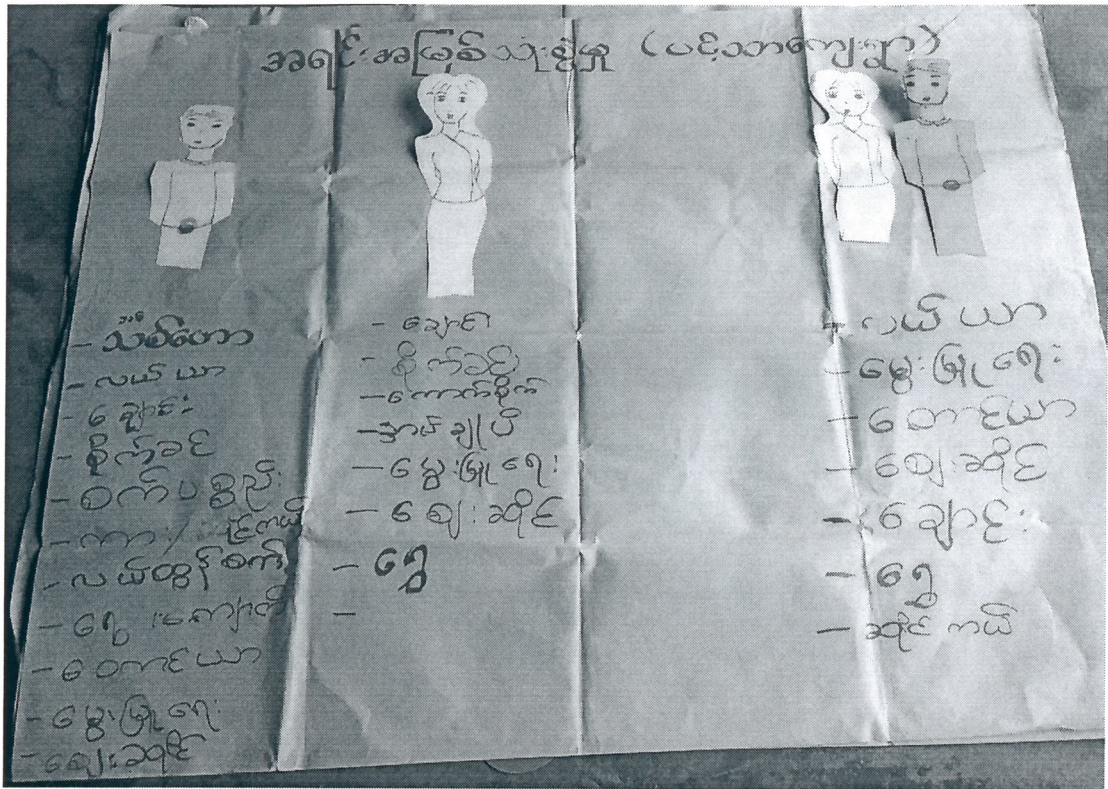 အရင်းအမြစ်သုံးစွဲမှု (ပင့်သာကျေးရွာ)
- သစ်တော
- လယ်ယာ
- ချောင်း
- စိုက်ခင်း
- စက်ပစ္စည်း
- ကား/ ဆိုင်ကယ်
- လယ်ထွန်စက်
- ရွှေ၊ ကျောက်
- တောင်ယာ
- မွေးမြူရေး
- ဈေးဆိုင်
- ချောင်း
- စိုက်ခင်း
- ကောက်စိုက်
- မွေးမြူရေး
- ဈေးဆိုင်
- ရွှေ
-
- လယ်ယာ
- မွေးမြူရေး
- တောင်ယာ
- ဈေးဆိုင်
- ချောင်း
- ရွှေ
- ဆိုင်ကယ်